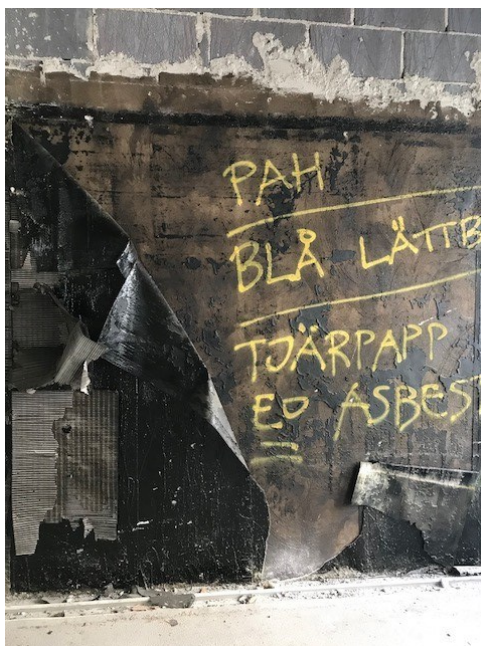 PAH
BLÅ LÄTTB
TJÄRPAPP
EJ ASBEST